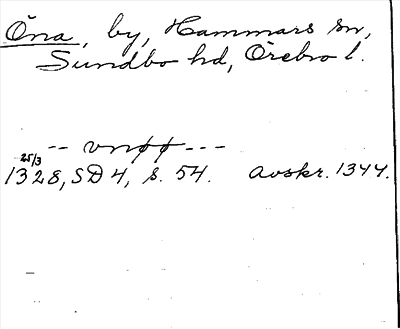 Öna, by, Hammars sn,
Sundbo hd, Örebro l.
-- vnøø ---
25/3
1328, SD 4, s. 54. Avskr. 1344.